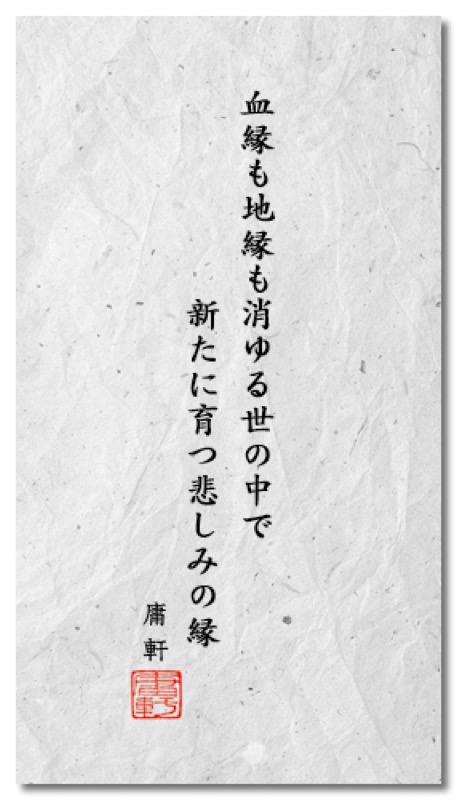 血縁も地縁も消ゆる世の中で
新たに育つ悲しみの縁
庸軒
庸軒